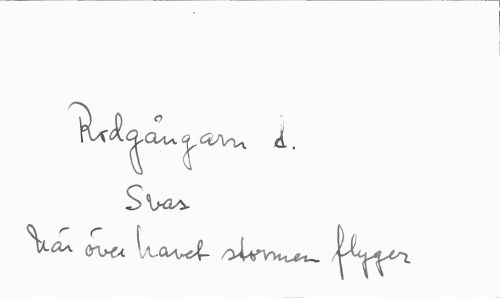 Rodgångarn d.
Svas
När över havet stormen flyger